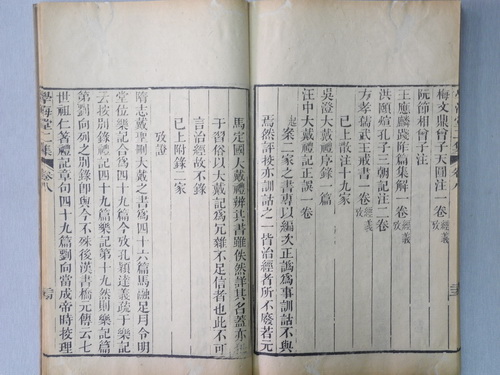 梅文鼎曾子天圓注一卷 經義攷
阮節相曾子注
王應麟踐阼篇集解一卷 經義攷
洪頤煊孔子三朝記注二卷
方孝孺武王戒書一卷 經義攷
已上散注十九家
吳澄大戴禮序錄一篇
汪中大戴禮記正誤一卷
案二家之書專以編次正譌為事訓詁不與
焉然評挍亦訓詁之一皆治經者所不廢若元
馬定國大戴禮辨其書雖佚然詳其名蓋亦
于習俗以大戴記為冗雜不足信者也此不可
言治經故不錄
已上附錄二家
攷證
隋志戴聖刪大戴之書為四十六篇馬融足月令明
堂位樂記合為四十九篇今攷孔穎達義疏于樂記
云按別錄禮記四十九篇樂記第十九然則樂記篇
第劉向列之別錄即與今不殊後漢書橋元傳云七
世祖仁著禮記章句四十九篇劉向當成帝時挍理
學海堂二集 卷八